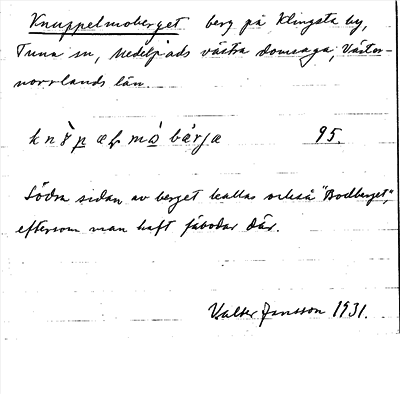 Knuppelmoberget berg på Klingsta by,
Tuna sn, Medelpads västra domsaga, Väster-
norrlands län.
95.
Södra sidan av berget kallas också "Bodberget",
eftersom man haft fäbodar där.
Valter Jansson 1931.